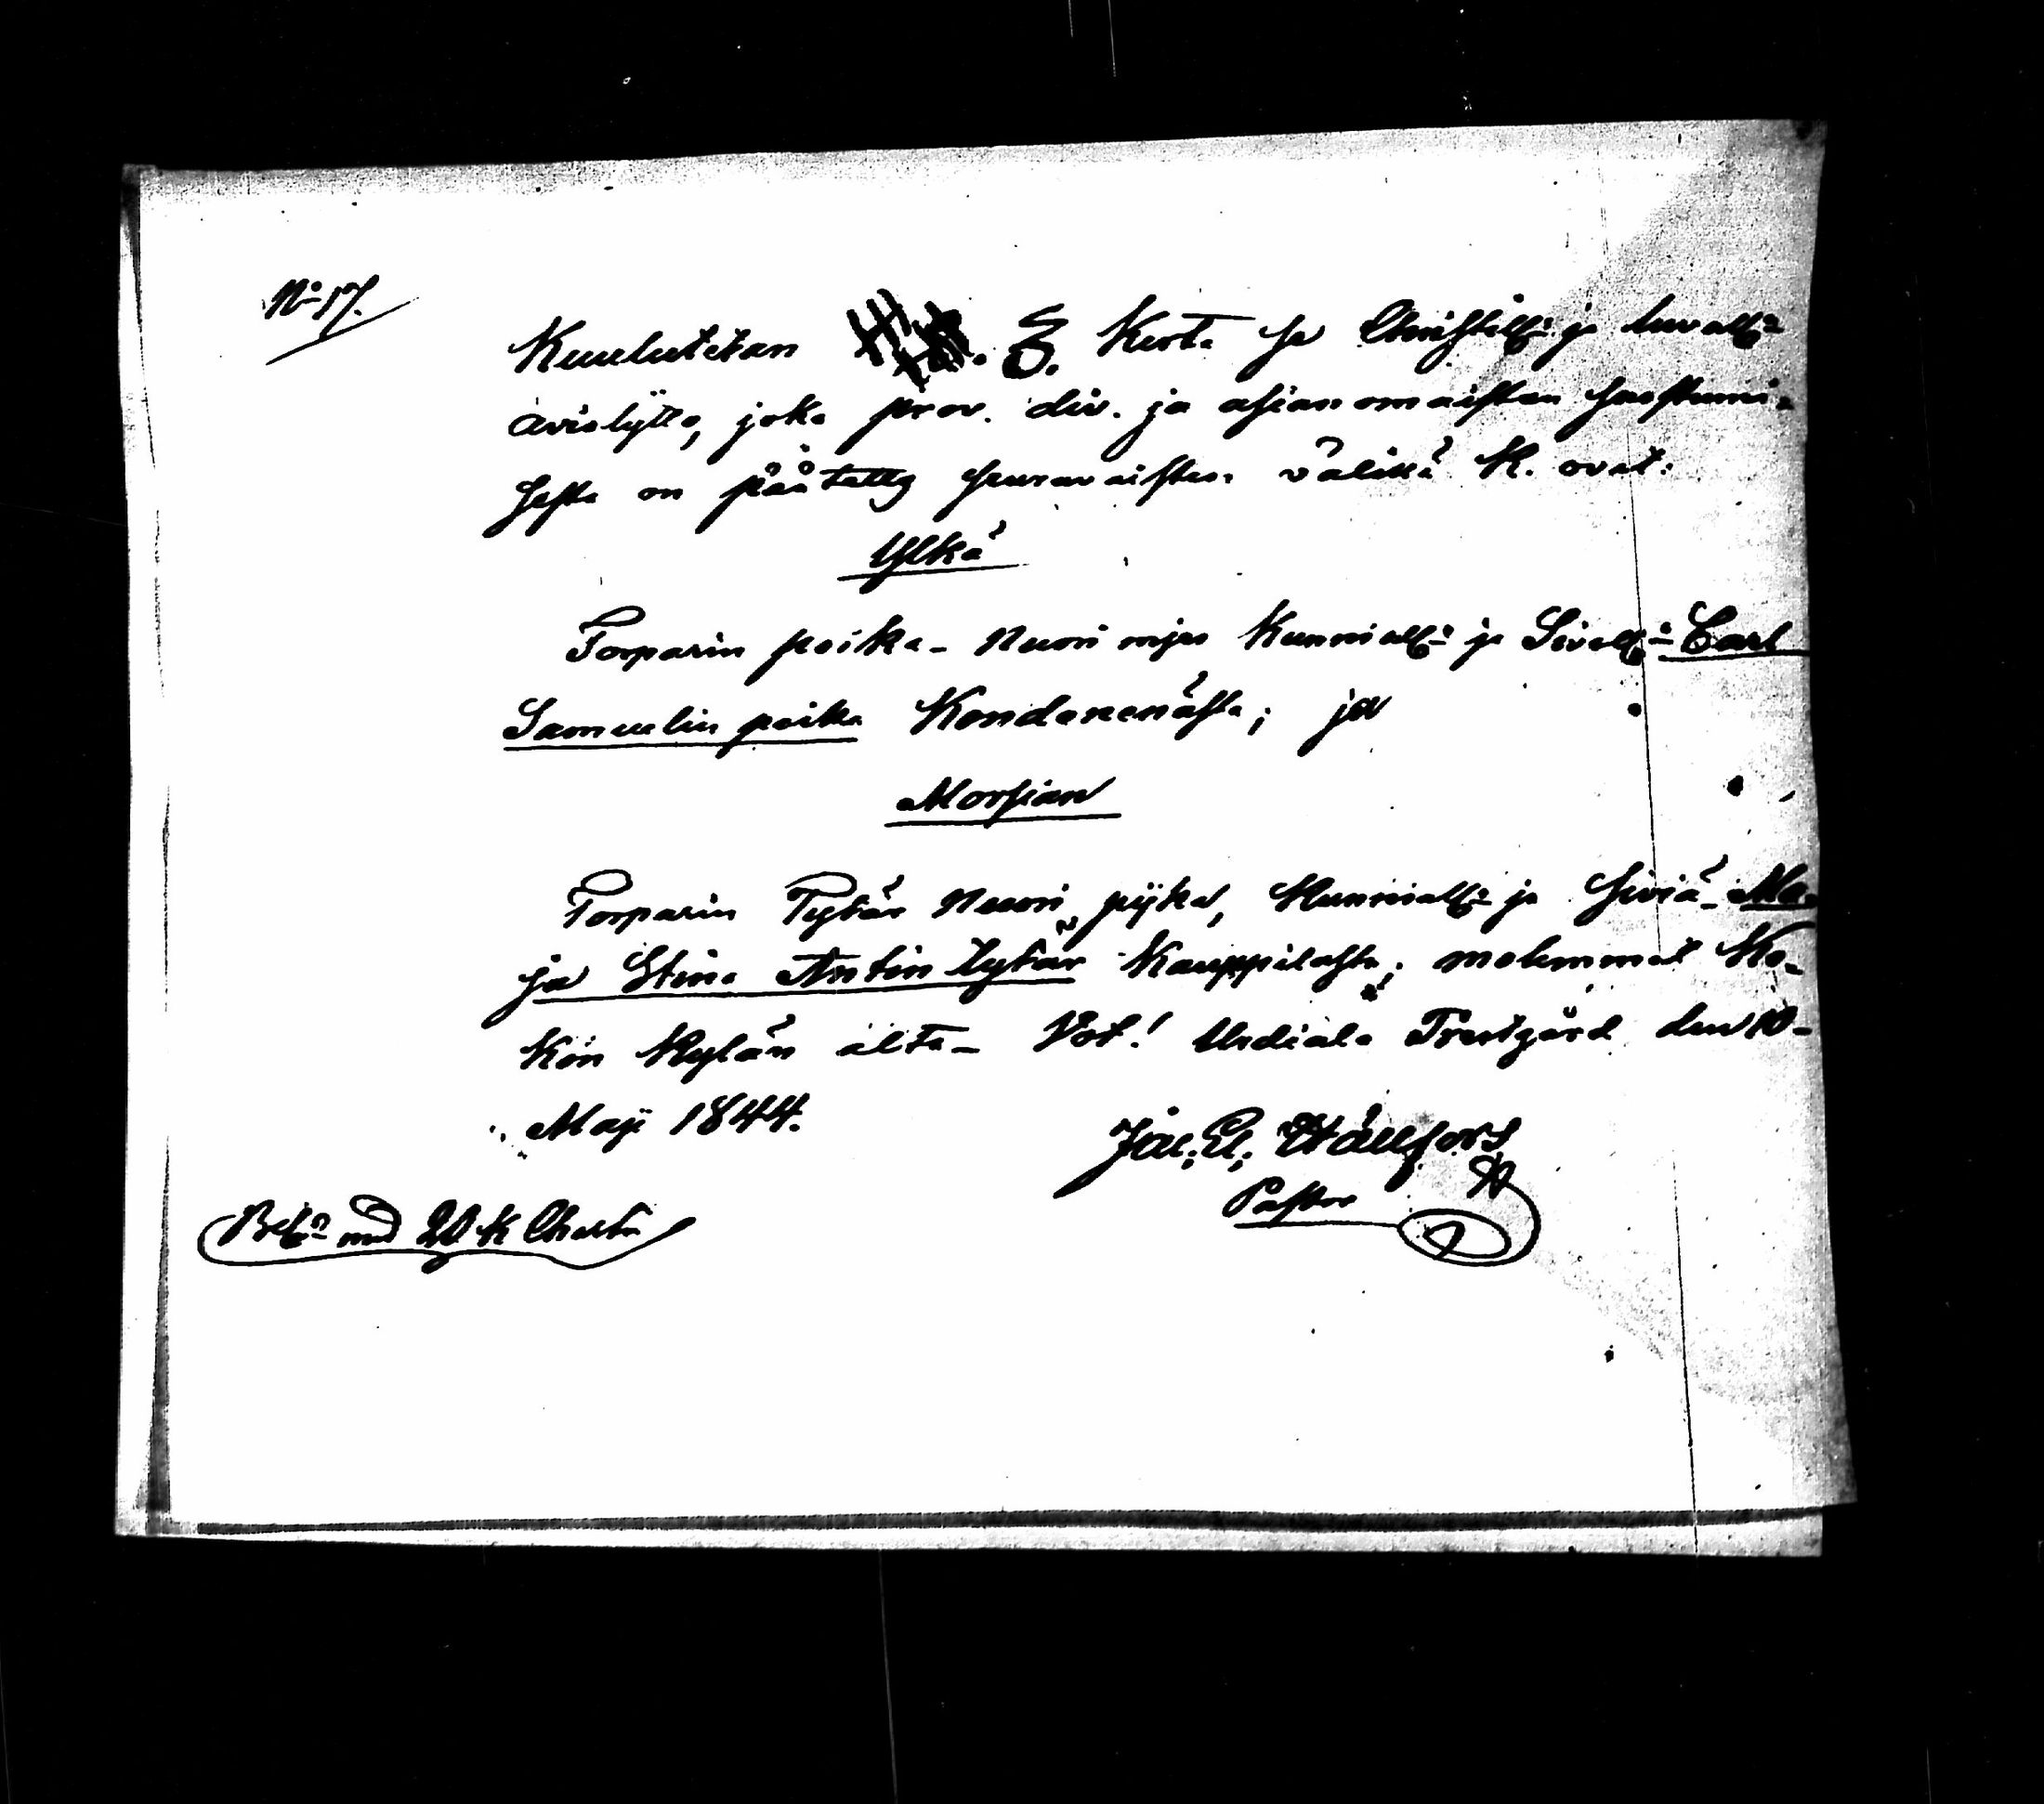 No 17.
Kuulutetan 3. Kerta se Christill: ja luvall:
avioliitto, joka prov. div. ja asianomaisten suostumi-
sesta on päätetty seuravaisten välillä K. ovat:
Ylkä
Torparin poika- Nuori mjes Kunniall: ja Siviall: Carl
Samuelin poika Kondarenästä; ja
Morsian
Torparin Tytär Nuori pijka, Kunniall: ja siviä- Ma-
ja Stina Antin tytär Kauppilasta; molemmat Ko-
Kön Kylän alta- Vot! Urdiala Prestgård den 10-
Maji 1844.
Jac. E. Hällfors
Pastor
med Charta